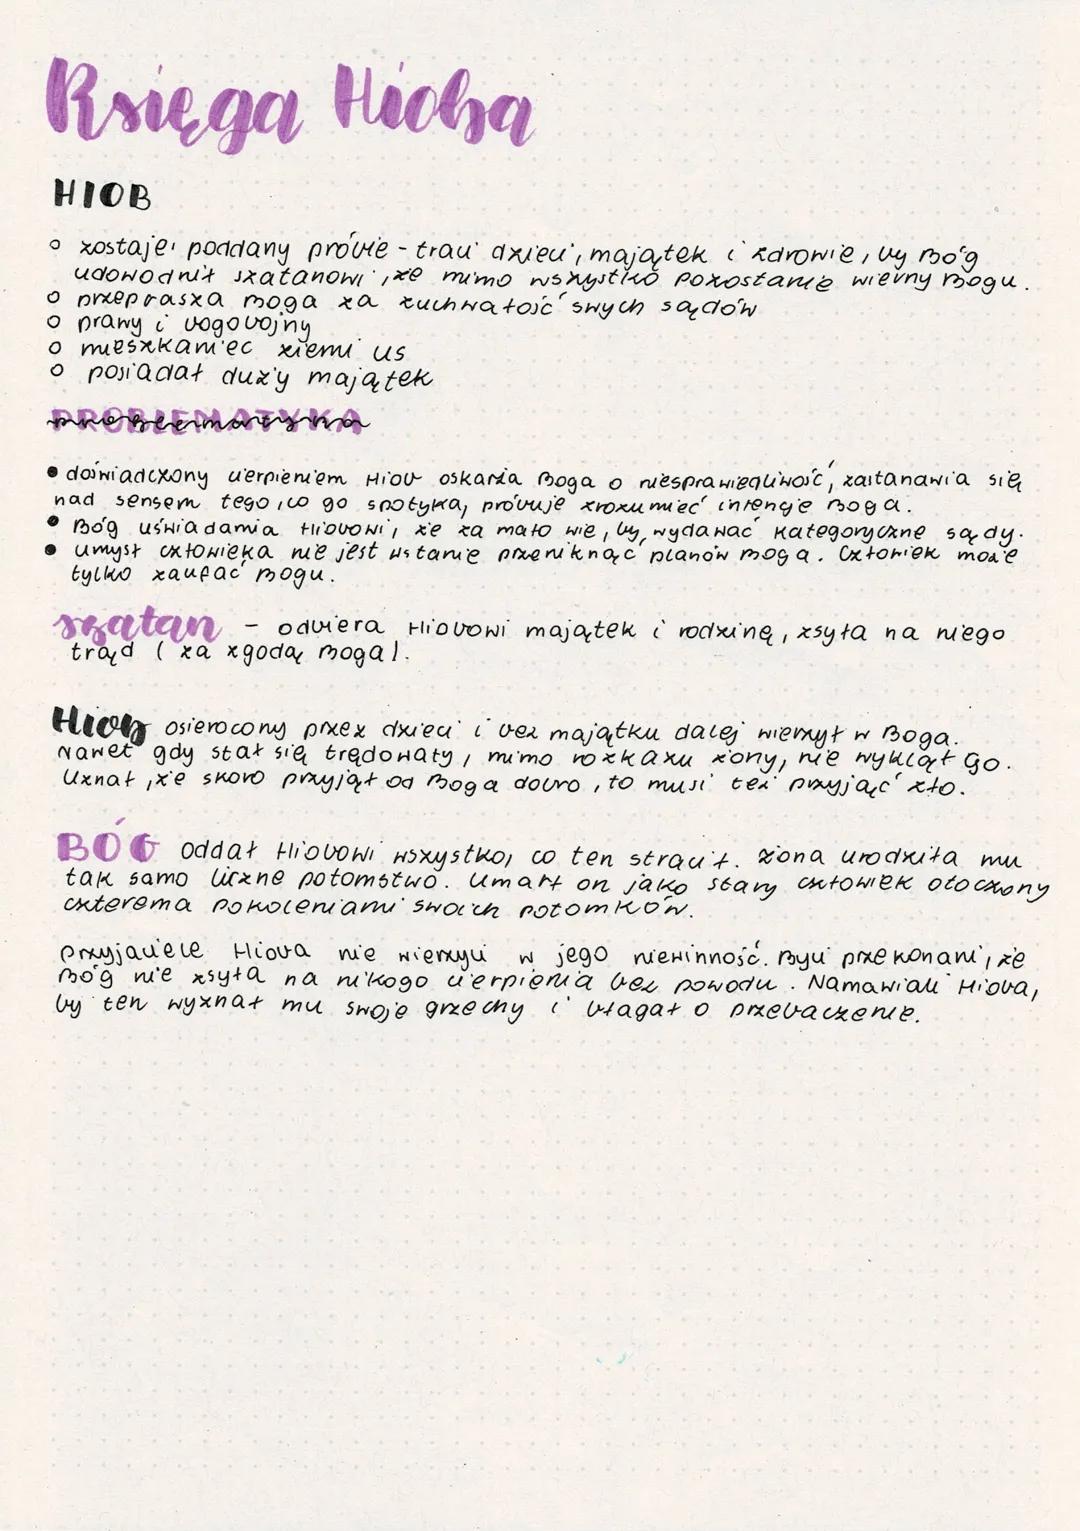 Księga Hioba
HIOB
o zostaje poddany próbie - traci dzieci, majątek i zdrowie, by Bóg
udowodnił szatanowi, że mimo wszystko pozostanie wierny Bogu.
o przeprasza Boga za zuchwałość swych sądów
o prawy i bogobojny
o mieszkaniec ziemi us
o posiadał duży majątek
PROBLEMATYKA problematyka
• doświadczony cierpieniem Hiob oskarża Boga o niesprawiedliwość, zastanawia się
nad sensem tego, co go spotyka, próbuje zrozumieć intencje Boga.
• Bóg uświadamia Hiobowi, że za mało wie, by wydawać kategoryczne sądy.
• umysł człowieka nie jest w stanie przeniknąć planów Boga. Człowiek może
tylko zaufać Bogu.
szatan - odbiera Hiobowi majątek i rodzinę, zsyła na niego
trąd (za zgodą Boga).
Hiob osierocony przez dzieci i bez majątku dalej wierzył w Boga.
Nawet gdy stał się trędowaty, mimo rozkazu żony, nie wyklął Go.
Uznał, że skoro przyjął od Boga dobro, to musi też przyjąć zło.
BÓG oddał Hiobowi wszystko, co ten stracił. Żona urodziła mu
tak samo liczne potomstwo. Umarł on jako stary człowiek otoczony
czterema pokoleniami swoich potomków.
Przyjaciele Hioba nie wierzyli w jego niewinność. Byli przekonani, że
Bóg nie zsyła na nikogo cierpienia bez powodu. Namawiali Hioba,
by ten wyznał mu swoje grzechy i błagał o przebaczenie.